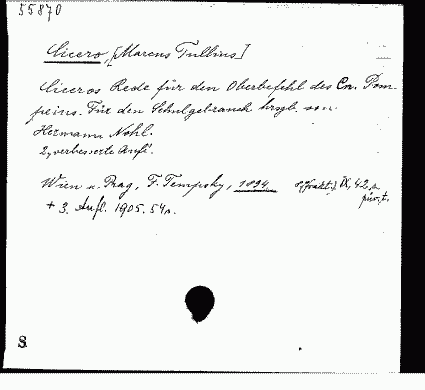 55870
Cicero, [Marcus Tullius]
Ciceros Rede für den Oberbefehl des Cn. Pom-
peius. Für den Schulgebrauch hrsgb. von
Hermann Nohl.
2, verbesserte Aufl.
Wien u. Prag, F. Tempsky, 1894 8° IX, 42 s.
+ 3. Aufl. 1905. 54 s.
8